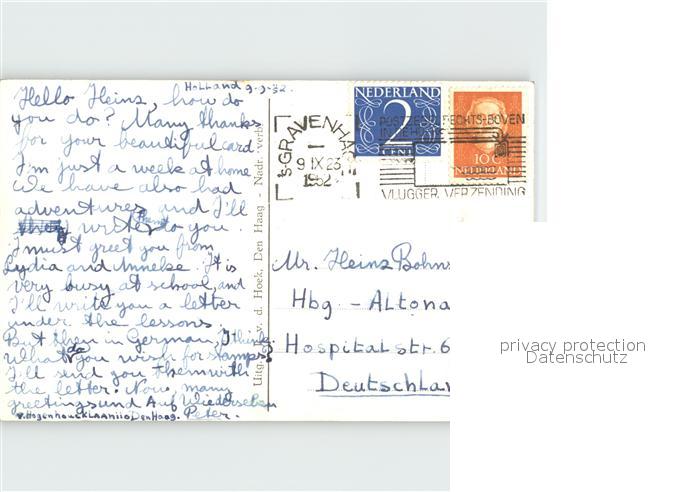 Holland 9-9-52.
Hello Heinz, how do
you do? Many thanks
for your beautiful card.
I'm just a week at home
We have also had
adventures and I'll
write them to you.
I must greet you from
Lydia and Anneke. It is
very busy at school, and
I'll write you a letter
under the lessons.
But then in German, I think.
What do you wish for stamps?
I'll send you them with
the letter. Now, many
greetings und Auf Wiedersehen
Peter.
v. Hogenhoucklaan 110 Den Haag.
Uitg. v. d. Hoek, Den Haag - Nadr. verb.
NEDERLAND
2
CENT
10 C
NEDERLAND
'S-GRAVENHAGE
9 IX 23
1952
POSTZEGEL RECHTS-BOVEN
VLUGGER VERZENDING
Mr. Heinz Bohns
Hbg - Altona
Hospitalstr. 6
Deutschlan
privacy protection
Datenschutz